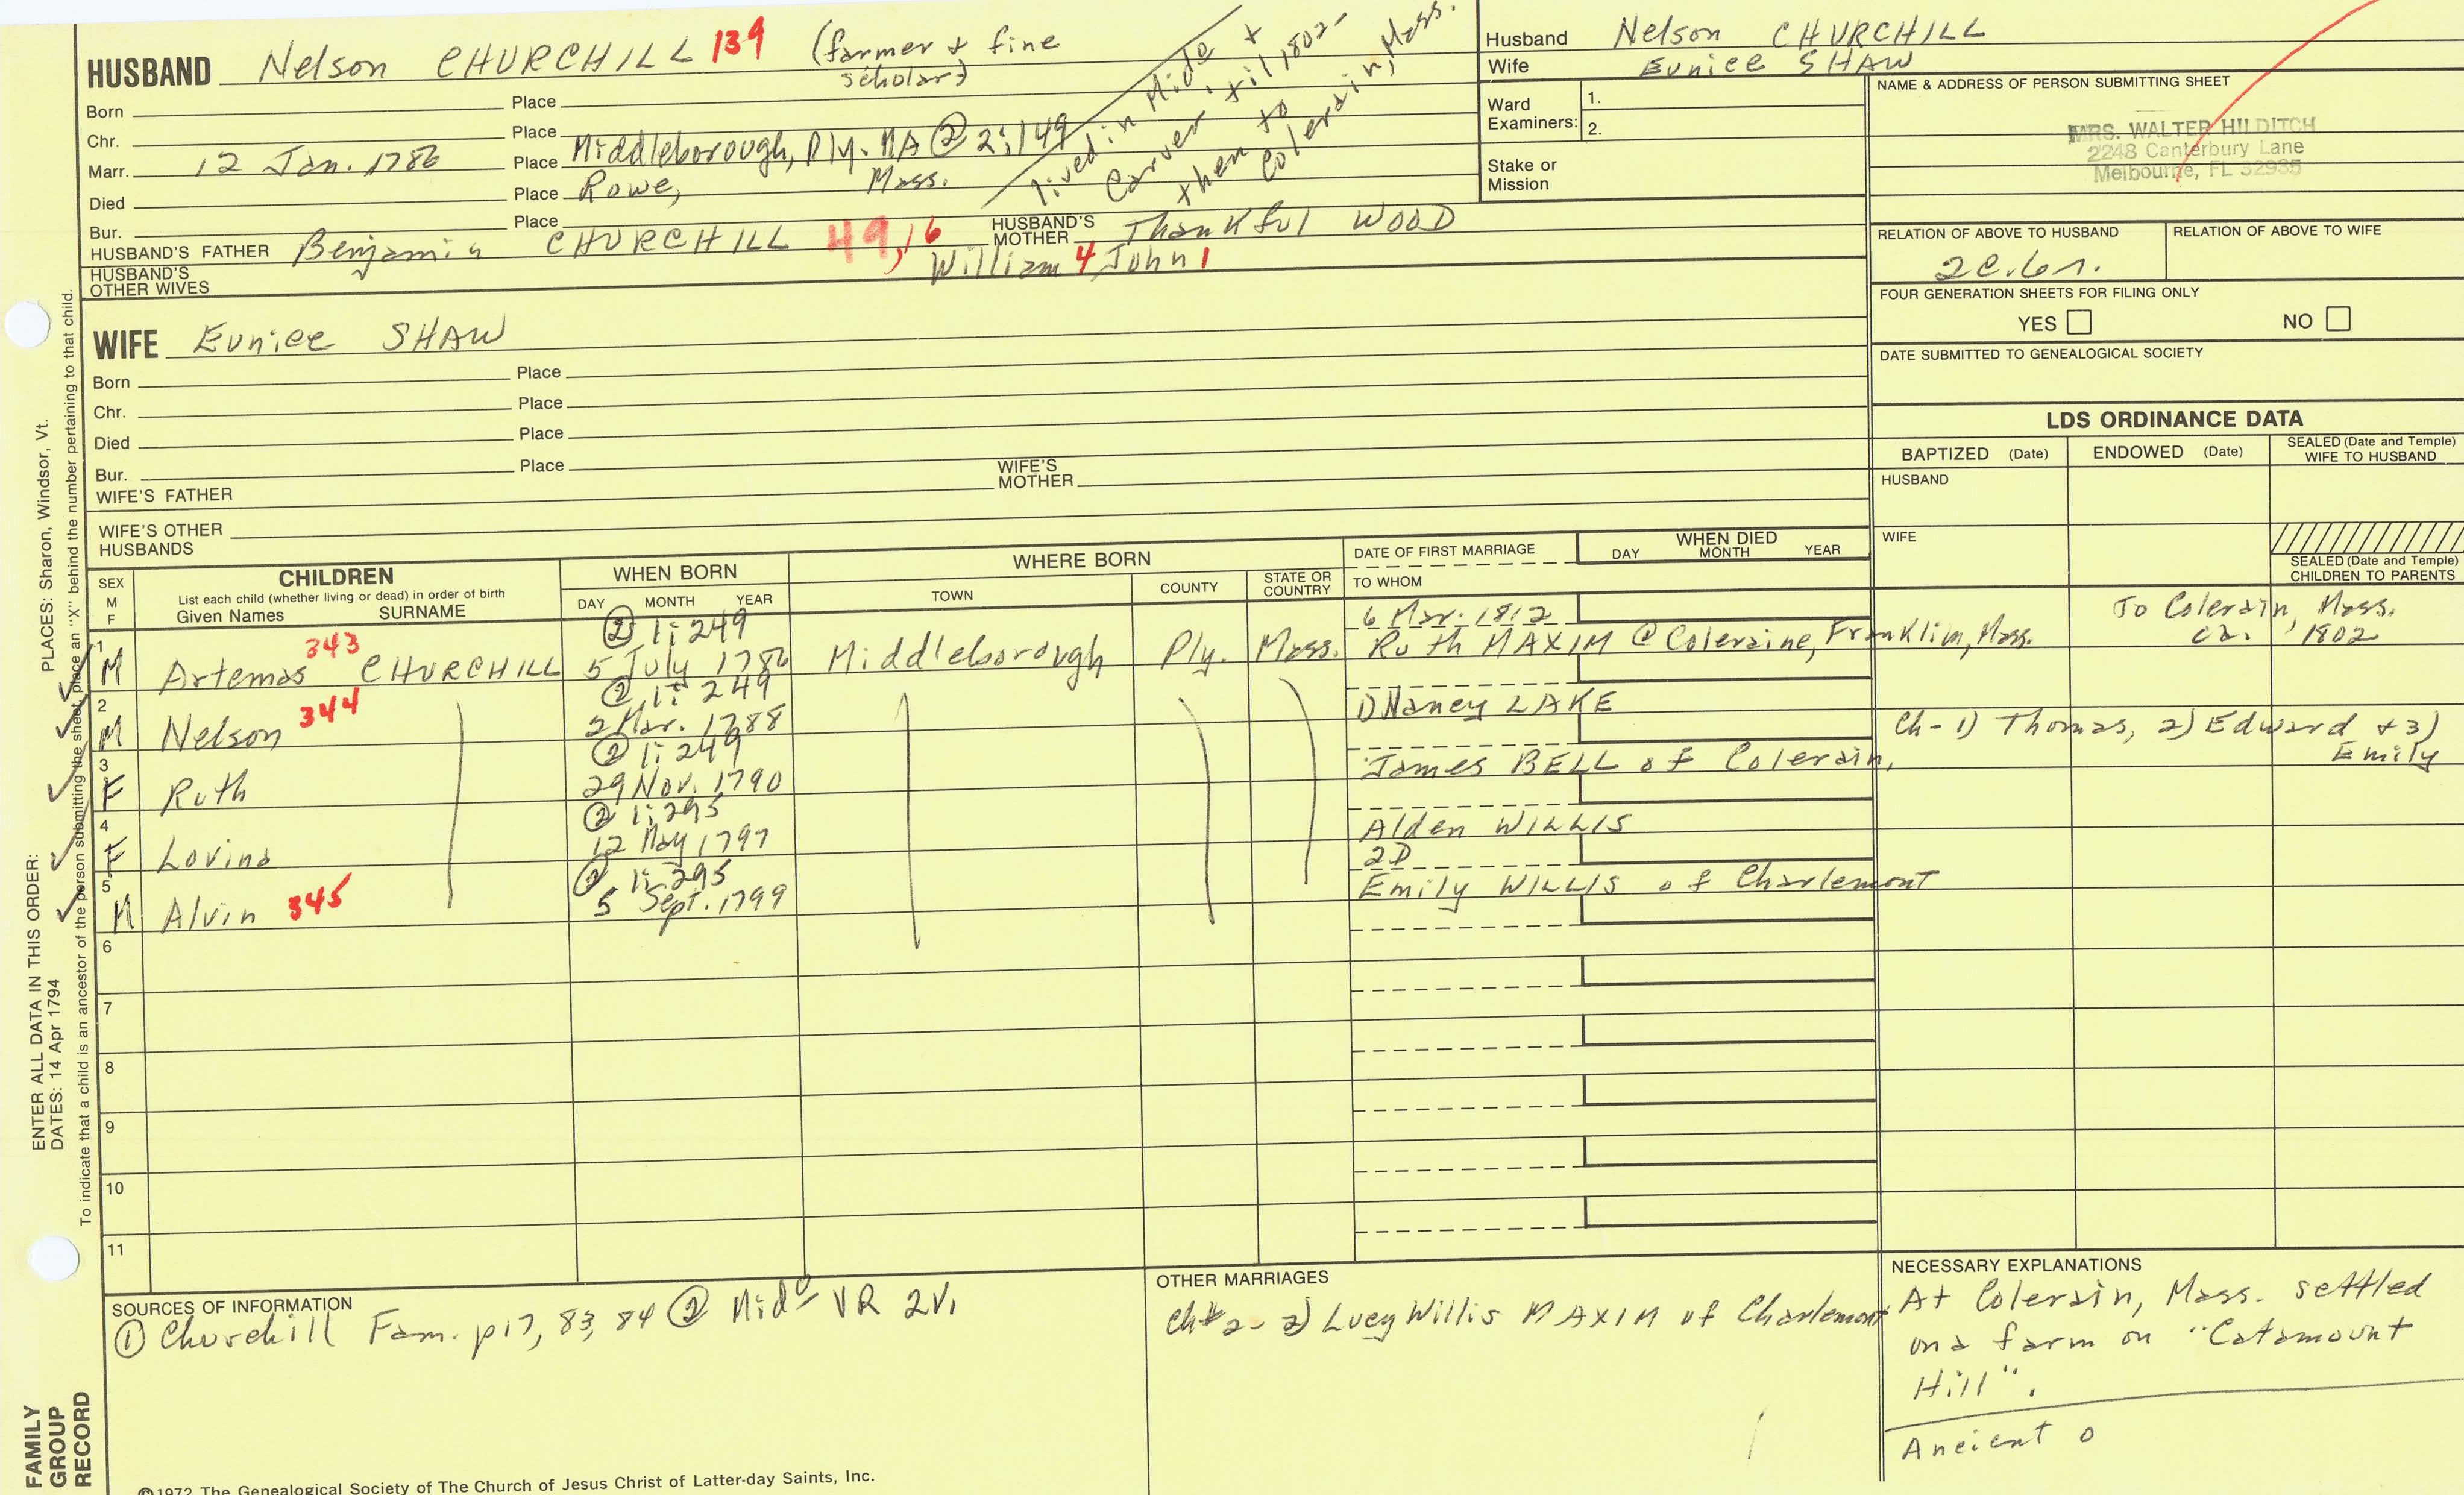 HUSBAND Nelson CHURCHILL 139 (farmer & fine
scholar)
Born Place
Chr. Place
Marr. 12 Jan. 1786 Place Middleborough, Ply. MA @ 2:149
Died Place Rowe, Mass.
Bur. Place
lived in Mido &
Carver til 1802-
then to
Colerain, Mass.
HUSBAND'S FATHER Benjamin CHURCHILL 49,16 HUSBAND'S MOTHER Thankful WOOD
William 4 John 1
HUSBAND'S OTHER WIVES
WIFE Eunice SHAW
Born Place
Chr. Place
Died Place
Bur. Place
WIFE'S FATHER WIFE'S MOTHER
WIFE'S OTHER HUSBANDS
Husband Nelson CHURCHILL
Wife Eunice SHAW
Ward Examiners: 1.
2.
Stake or Mission
NAME & ADDRESS OF PERSON SUBMITTING SHEET
MRS. WALTER HILDITCH
2248 Canterbury Lane
Melbourne, FL 32935
RELATION OF ABOVE TO HUSBAND RELATION OF ABOVE TO WIFE
2c.6r.
FOUR GENERATION SHEETS FOR FILING ONLY
YES NO
DATE SUBMITTED TO GENEALOGICAL SOCIETY
LDS ORDINANCE DATA
BAPTIZED (Date) ENDOWED (Date) SEALED (Date and Temple) WIFE TO HUSBAND
HUSBAND
WIFE
SEALED (Date and Temple) CHILDREN TO PARENTS
SEX M F
CHILDREN
List each child (whether living or dead) in order of birth
Given Names SURNAME
WHEN BORN
DAY MONTH YEAR
WHERE BORN
TOWN COUNTY STATE OR COUNTRY
DATE OF FIRST MARRIAGE
TO WHOM
WHEN DIED
DAY MONTH YEAR
② 1:249 6 Mar. 1812 To Colerain, Mass.
ca. 1802
1 M Artemas 343 CHURCHILL 5 July 1786 Middleborough Ply. Mass. Ruth MAXIM @ Coleraine, Franklin, Mass.
② 1:249
2 M Nelson 344 2 Mar. 1788 1) Nancy LAKE Ch- 1) Thomas, 2) Edward + 3)
Emily
② 1:249
3 F Ruth 29 Nov. 1790 James BELL of Colerain,
② 1:295
4 F Lovina 12 May 1797 Alden WILLIS
② 1:295
5 M Alvin 345 5 Sept. 1799 Emily WILLIS of Charlemont
6
7
8
9
10
11
SOURCES OF INFORMATION
① Churchill Fam. p17, 83, 84 ② Mido VR 2V,
OTHER MARRIAGES
Ch#2- 2) Lucy Willis MAXIM of Charlemont
NECESSARY EXPLANATIONS
At Colerain, Mass. settled
on a farm on "Catamount
Hill".
Ancient o
©1972 The Genealogical Society of The Church of Jesus Christ of Latter-day Saints, Inc.
FAMILY
GROUP
RECORD
ENTER ALL DATA IN THIS ORDER:
DATES: 14 Apr 1794
PLACES: Sharon, Windsor, Vt.
To indicate that a child is an ancestor of the person submitting the sheet, place an "X" behind the number pertaining to that child.